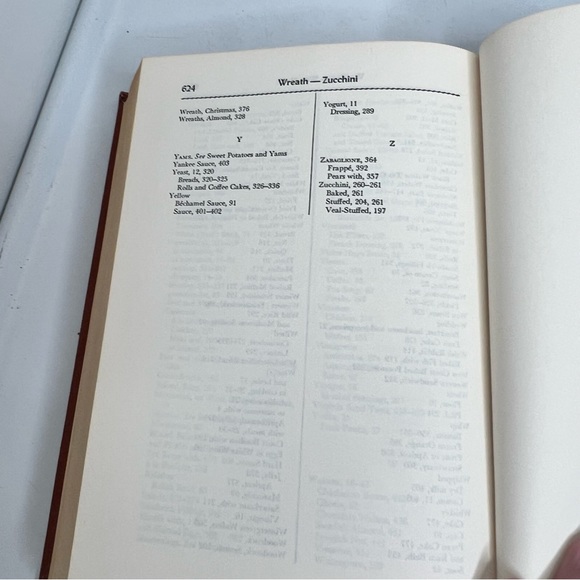 624
Wreath — Zucchini
Wreath, Christmas, 376
Wreaths, Almond, 328
Y
YAMS. See Sweet Potatoes and Yams
Yankee Sauce, 403
Yeast, 12, 320
Breads, 320-325
Rolls and Coffee Cakes, 326-336
Yellow
Béchamel Sauce, 91
Sauce, 401-402
Yogurt, 11
Dressing, 289
Z
ZABAGLIONE, 364
Frappé, 392
Pears with, 357
Zucchini, 260-261
Baked, 261
Stuffed, 204, 261
Veal-Stuffed, 197